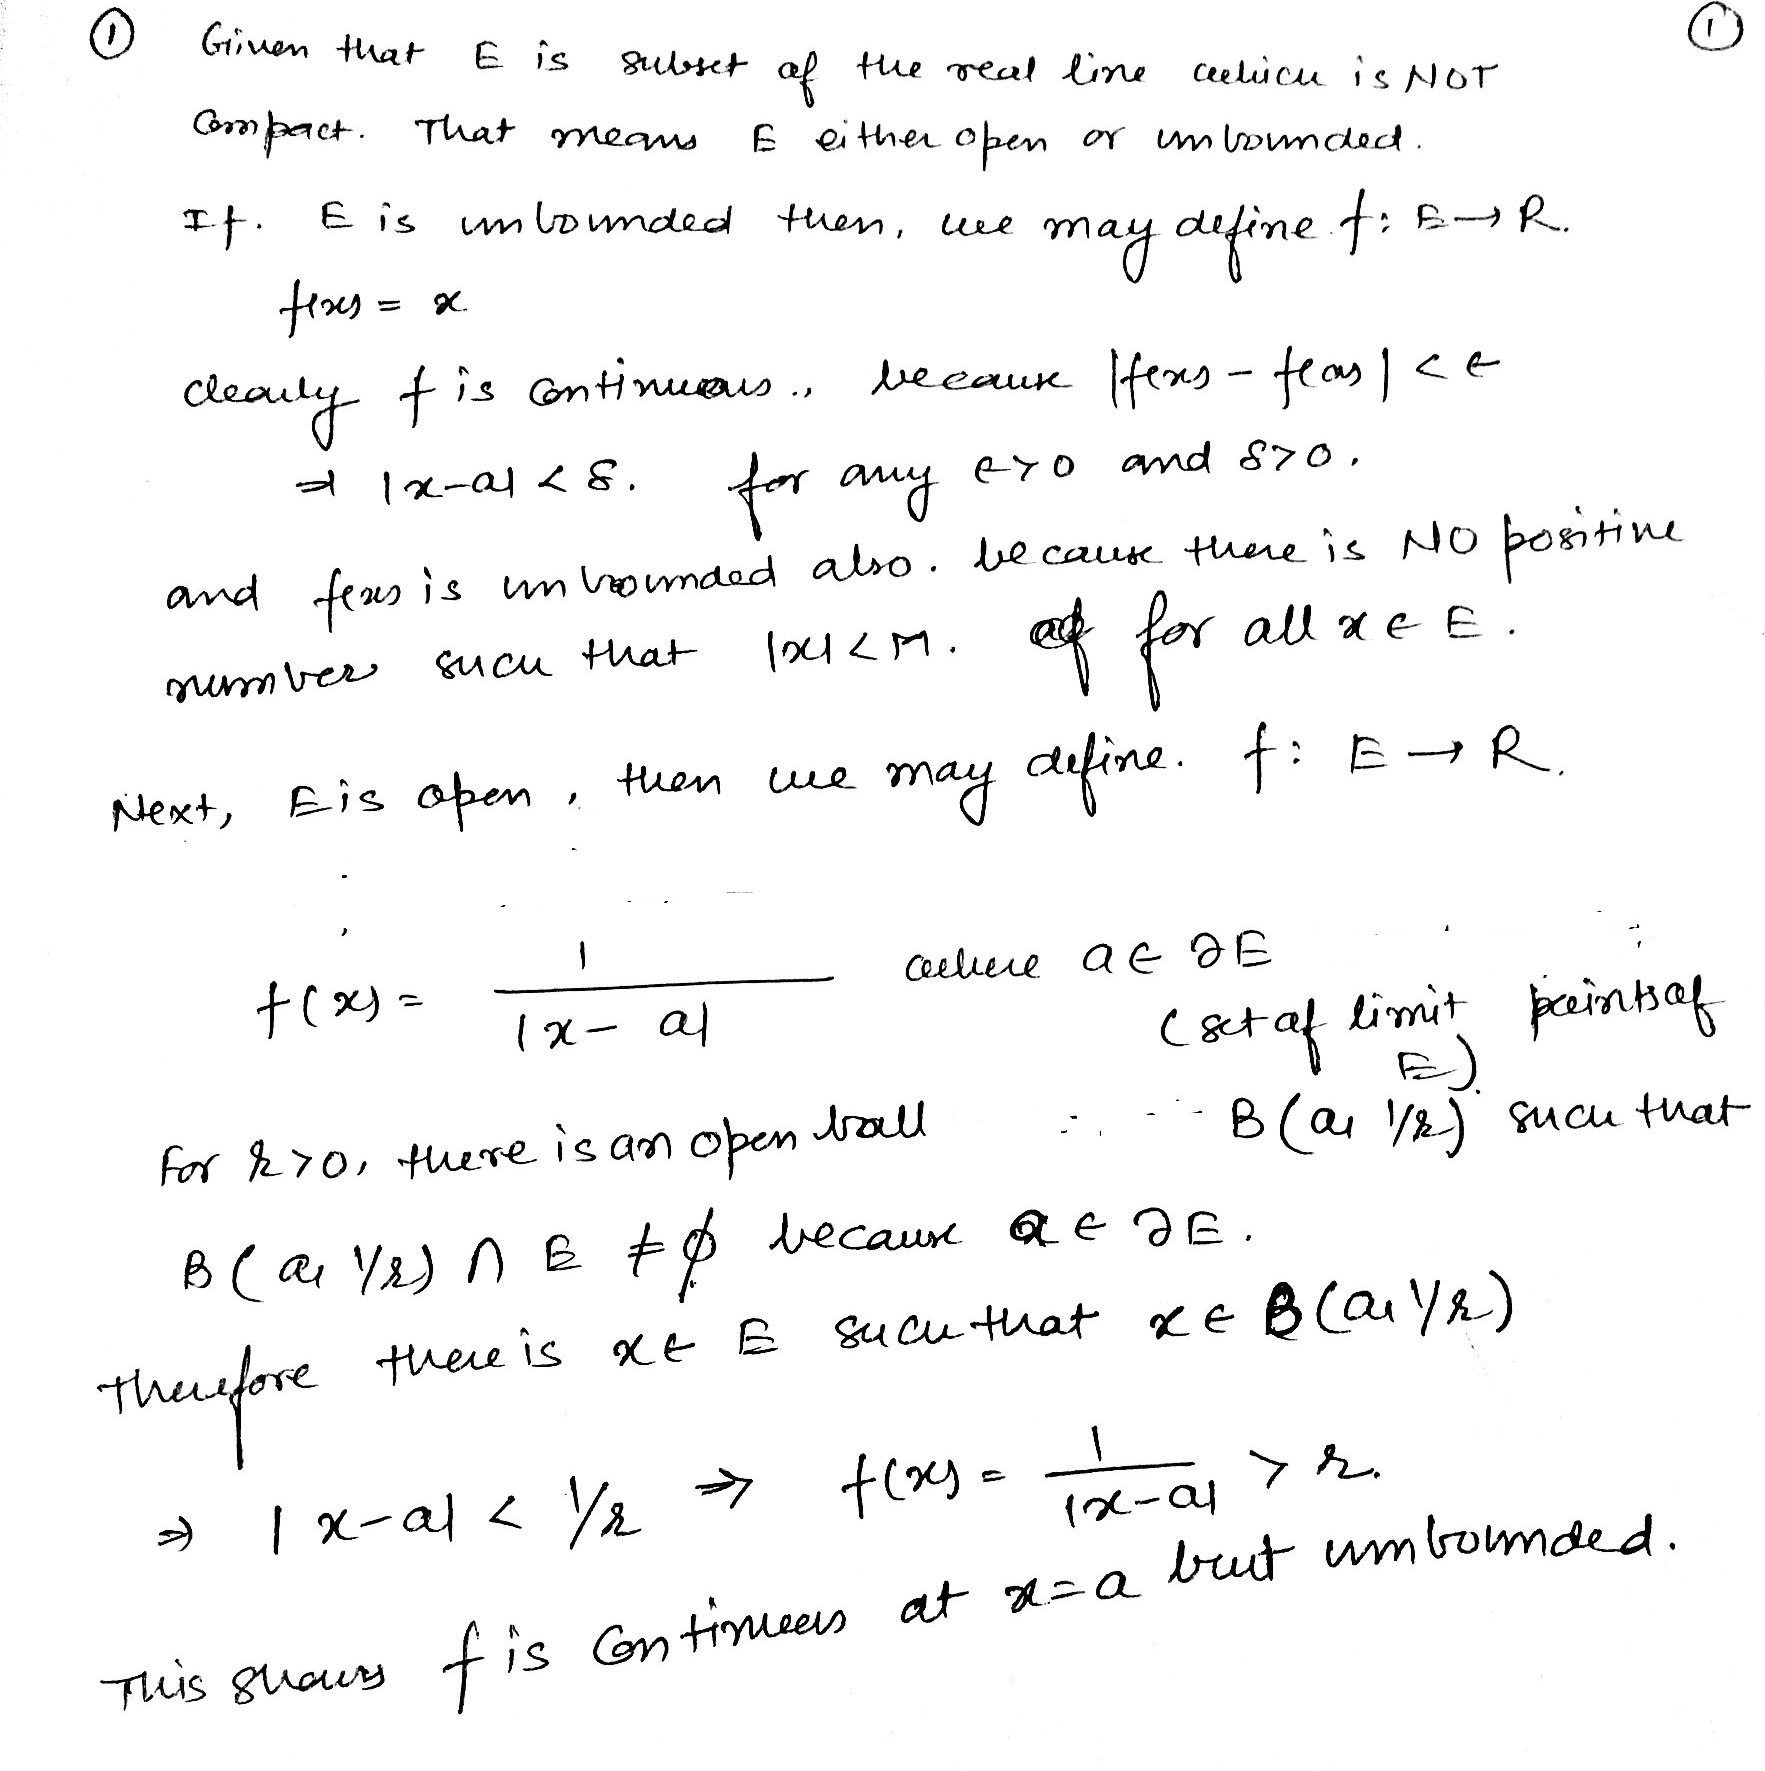 ① Given that E is subset of the real line which is NOT ①
compact. That means E either open or unbounded.
If. E is unbounded then, we may define f: E→R.
f(x) = x
clearly f is continuous., because |f(x) - f(a)| < ϵ
⇒ |x-a| < δ. for any ϵ>0 and δ>0.
and f(x) is unbounded also. because there is NO positive
number such that |x| < M. for all x ∈ E.
Next, E is open, then we may define. f: E → R.
f(x) = 1/|x - a| where a ∈ ∂E
(set of limit points of
E).
For r>0, there is an open ball B(a, 1/r) such that
B(a, 1/r) ∩ E ≠ ϕ because a ∈ ∂E.
therefore there is x ∈ E such that x ∈ B(a, 1/r)
⇒ |x-a| < 1/r ⇒ f(x) = 1/|x-a| > r.
This shows f is continuous at x=a but unbounded.